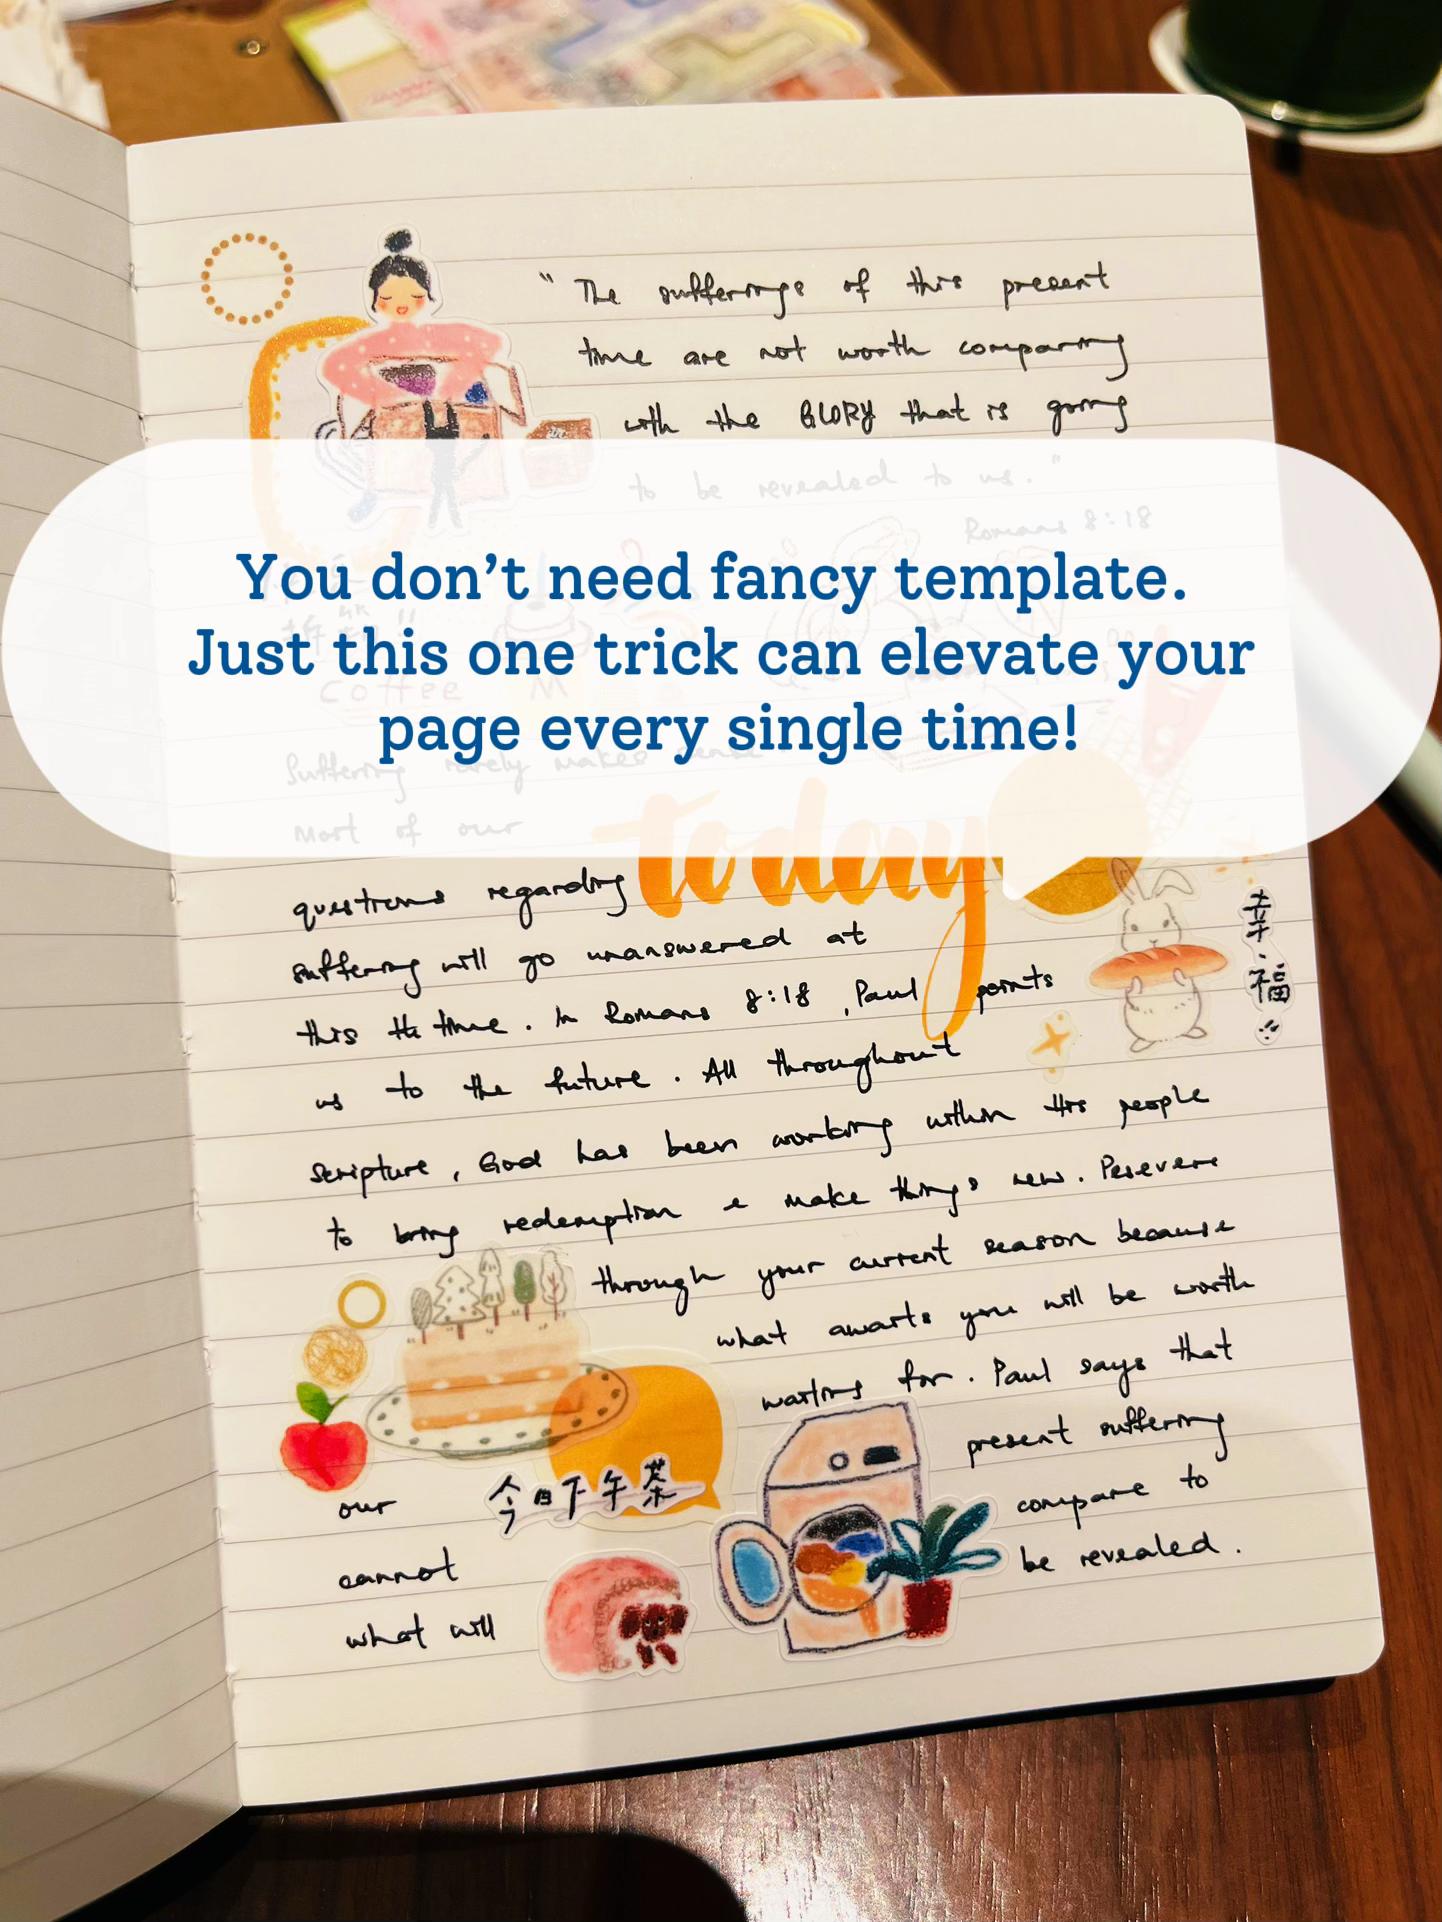 “The sufferings of this present
time are not worth comparing
with the GLORY that is going
to be revealed to us.”
Romans 8:18
You don’t need fancy template.
Just this one trick can elevate your
page every single time!
coffee
Suffering rarely makes sense
Most of our
today
questions regarding
suffering will go unanswered at
this time. In Romans 8:18, Paul points
us to the future. All throughout
scripture, God has been working within His people
to bring redemption & make things new. Persevere
through your current season because
what awaits you will be worth
waiting for. Paul says that
our present suffering
cannot compare to
what will be revealed.
幸福
今日下午茶